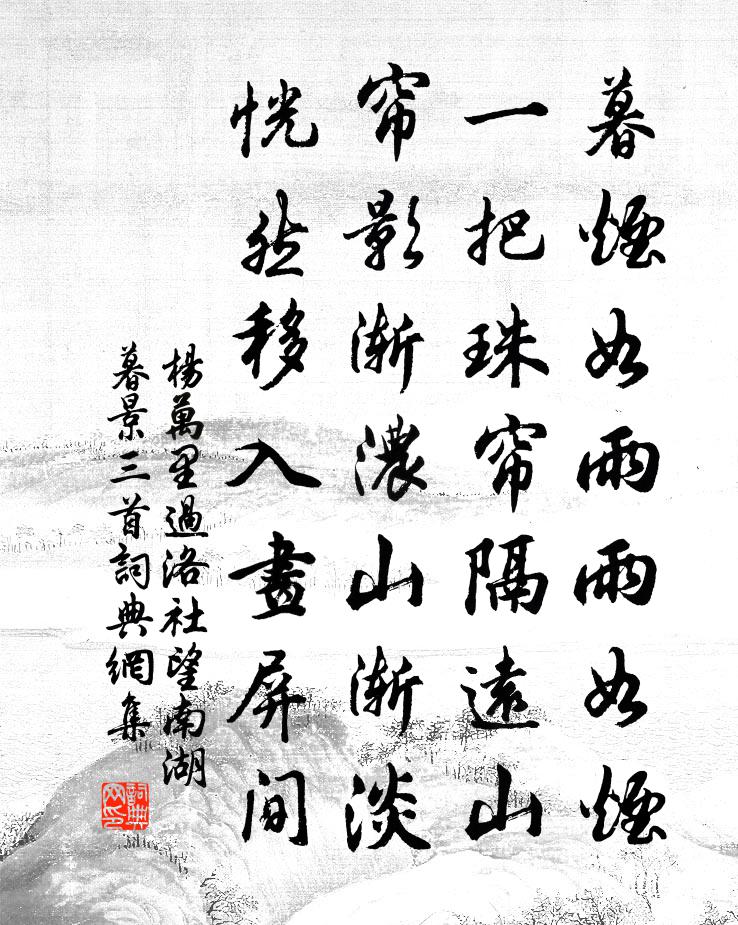 暮煙如雨雨如煙
一把珠帘隔遠山
帘影漸濃山漸淡
恍然移入畫屏間
楊萬里過洛社望南湖
暮景三首詞典網集
詞典網印